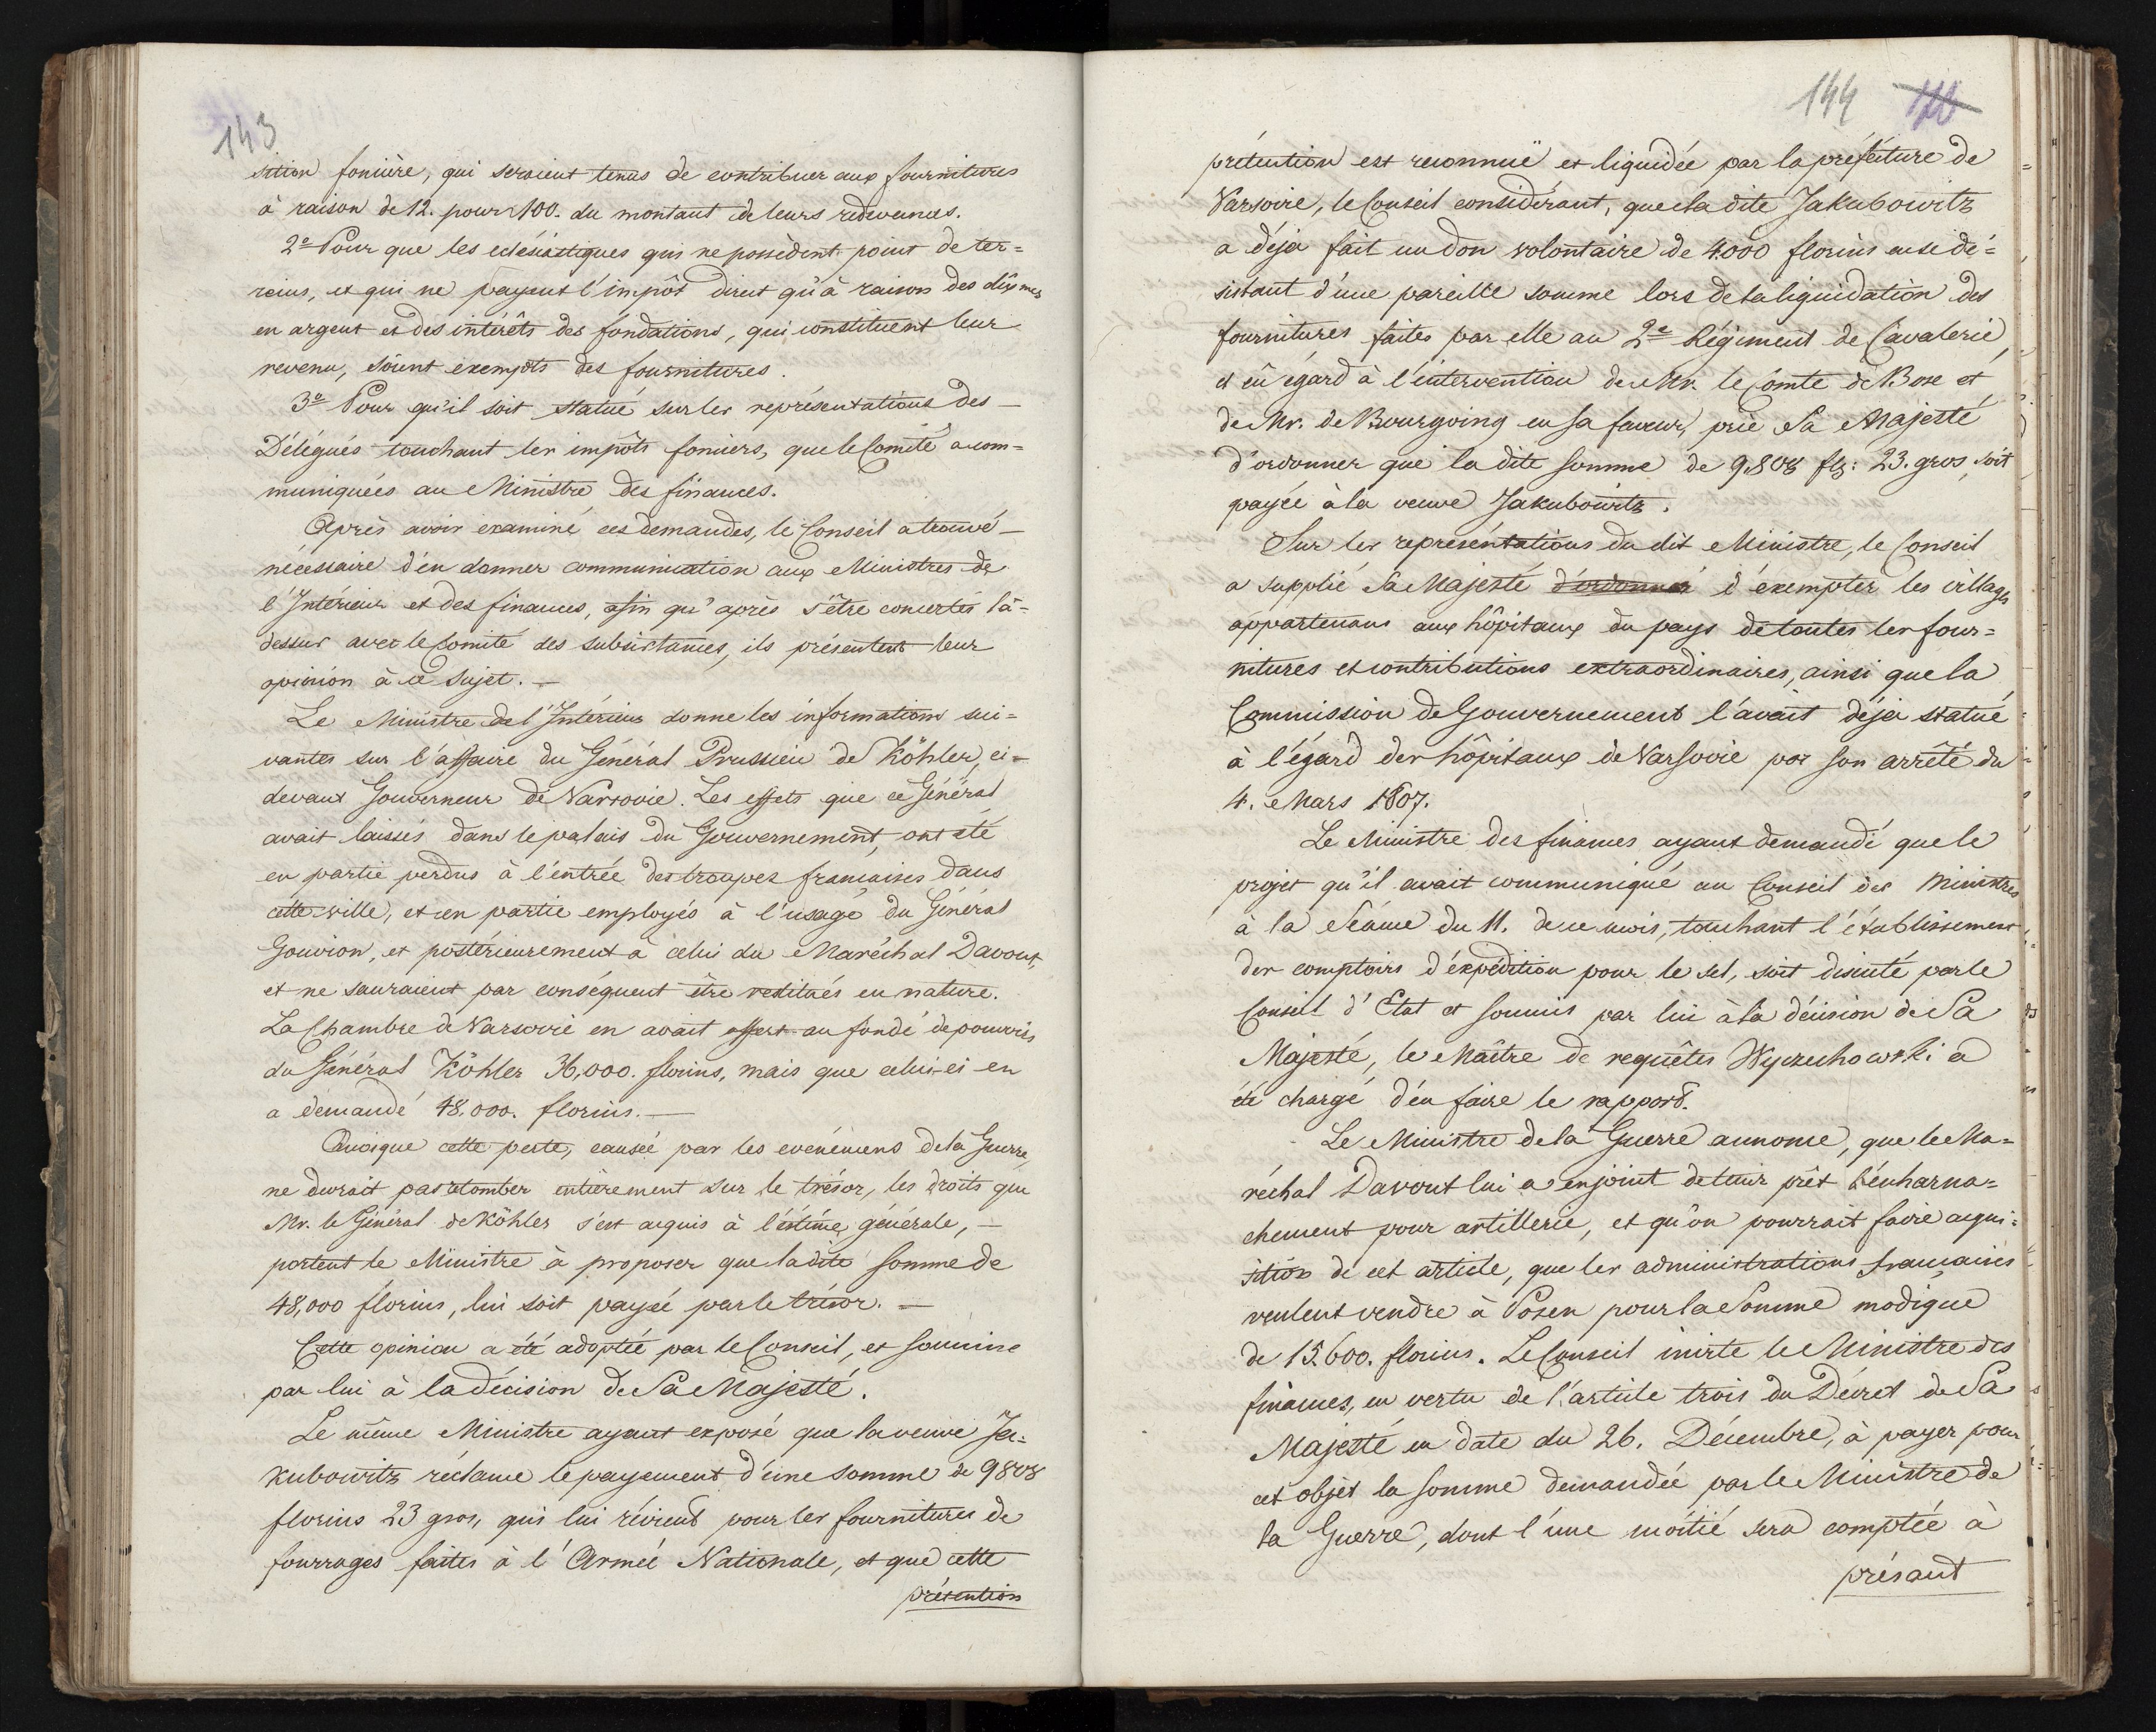 143
sition foncière, qui seroient tenus de contribuer aux fournitures
à raison de 12. pour 100. du montant de leurs redevances.
2º Pour que les eclésiastiques qui ne possèdent point de ter=
reins, et qui ne payent l'impôt direct qu'à raison des dîxmes
en argent et des intérêts des fondations, qui constituent leur
revenu, soient exempts des fournitures.
3º Pour qu'il soit statué sur les représentations des —
Délégués touchant les impôts fonciers, que le Comité a com=
muniquées au Ministre des finances.
Après avoir examiné ces demandes, le Conseil a trouvé —
nécessaire d'en donner communication aux Ministres de
l'Intérieur et des finances, afin qu'après s'être concertés là-
dessus avec le Comité des subsistances, ils présentent leur
opinion à ce sujet. —
Le Ministre de l'Intérieur donne les informations sui=
vantes sur l'affaire du Général Prussien de Köhler, ci=
devant Gouverneur de Varsovie. Les effets que ce Général
avait laissés dans le palais du Gouvernement, ont été
en partie perdus à l'entrée des troupes françaises dans
cette ville, et en partie employés à l'usage du Général
Gouvion, et postérieurement à celui du Maréchal Davout,
et ne sauraient par conséquent être restitués en nature.
La Chambre de Varsovie en avait offert au fondé de pouvoirs
du Général Köhler 36,000. florins, mais que celui-ci en
a demandé 48.000. florins. —
Quoique cette perte, causée par les evenémens de la Guerre,
ne devrait pas retomber entièrement sur le trésor, les droits que
Mr. le Général de Köhler s'est acquis à l'estime générale, —
portent le Ministre à proposer que la dite somme de
48,000 florins, lui soit payée par le trésor. —
Cette opinion a été adoptée par le Conseil, et soumise
par lui à la décision de Sa Majesté.
Le même Ministre ayant exposé que la veuve Ja=
kubowitz réclame le payement d'une somme de 9808
florins 23 gros, qui lui révient pour les fournitures de
fourrages faites à l'Armée Nationale, et que cette
prétention
144 110
prétention est reconnuë et liquidée par la préfecture de
Varsovie, le Conseil considérant, que la dite Jakubowitz
a déja fait un don volontaire de 4.000 florins en se dé=
sistant d'une pareille somme lors de la liquidation des
fournitures faites par elle au 2e Régiment de Cavalerie,
et eû égard à l'intervention de Mr. le Comte de Bose et
de Mr. de Bourgoing en sa faveur, prie Sa Majesté
d'ordonner que la dite somme de 9.808 flz: 23. gros, soit
payée à la veuve Jakubowitz.
Sur les représentations du dit Ministre, le Conseil
a supplié Sa Majesté d'ordonner d'exempter les villages
appartenans aux hôpitaux du pays de toutes les four=
nitures et contributions extraordinaires, ainsi que la
Commission de Gouvernement l'avait déja statué
à l'égard des hôpitaux de Varsovie par son arrêté du
4. Mars 1807.
Le Ministre des finances ayant demandé que le
projet qu'il avait communiqué au Conseil des Ministres
à la Séance du 11. de ce mois, touchant l'établissement
des comptoirs d'éxpédition pour le sel, soit discuté par le
Conseil d'Etat et soumis par lui à la décision de Sa
Majesté, le Maître de requêtes Wyczechowski a
été chargé d'en faire le rapport.
Le Ministre de la Guerre annonce, que le Ma=
réchal Davout lui a enjoint de tenir prêt l'enharna=
chement pour artillerie, et qu'on pourrait faire acqui=
sition de cet article, que les administrations françaises
veulent vendre à Posen pour la somme modique
de 15.600. florins. Le Conseil invite le Ministre des
finances, en vertu de l'article trois du Décret de Sa
Majesté en date du 26. Décembre, à payer pour
cet objet la somme demandée par le Ministre de
la Guerre, dont l'une moitié sera comptée à
présent